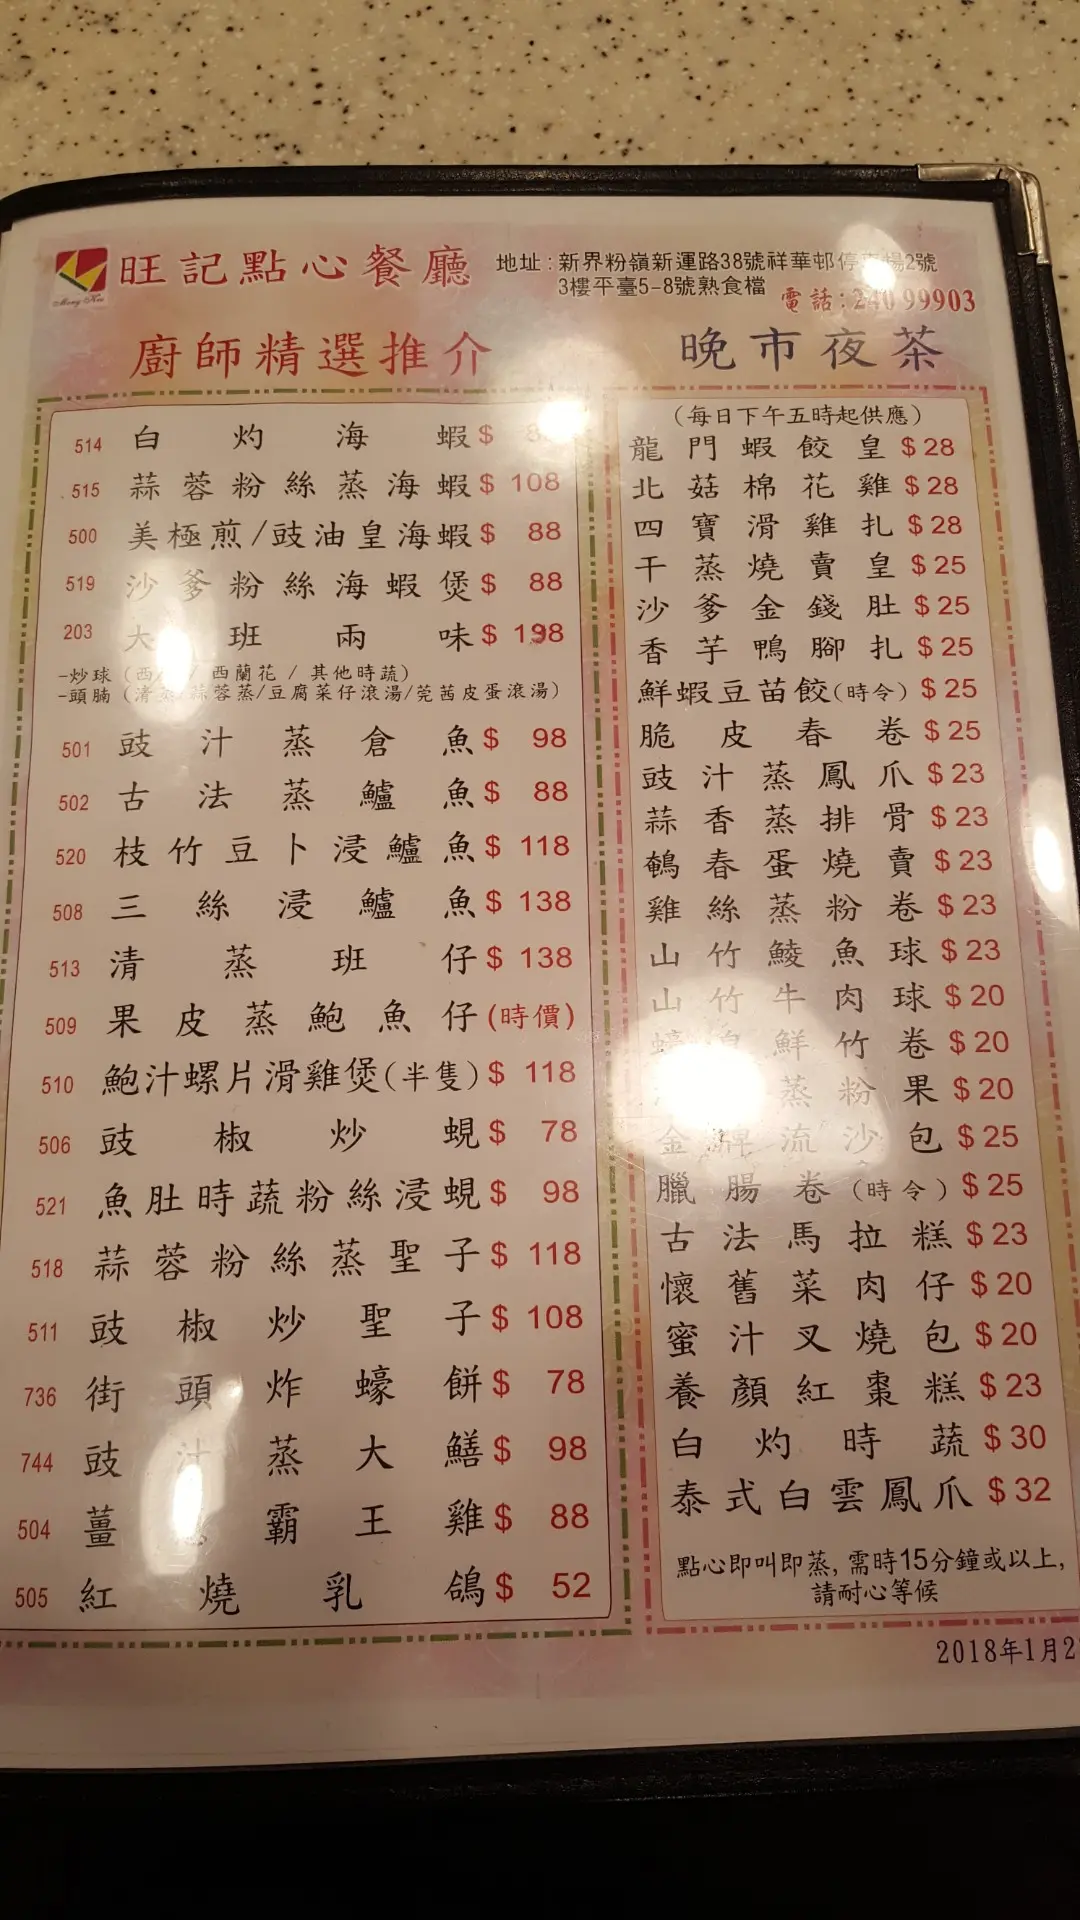 旺記點心餐廳
地址：新界粉嶺新運路38號祥華邨停車場2號
3樓平臺5-8號熟食檔
電話：240 99903
廚師精選推介
514 白灼海蝦 $
515 蒜蓉粉絲蒸海蝦 $ 108
500 美極煎/豉油皇海蝦 $ 88
519 沙爹粉絲海蝦煲 $ 88
203 大班兩味 $ 198
-炒球（西 / 西蘭花 / 其他時蔬）
-頭腩（清 蒜蓉蒸/豆腐菜仔滾湯/芫茜皮蛋滾湯）
501 豉汁蒸倉魚 $ 98
502 古法蒸鱸魚 $ 88
520 枝竹豆卜浸鱸魚 $ 118
508 三絲浸鱸魚 $ 138
513 清蒸班仔 $ 138
509 果皮蒸鮑魚仔 (時價)
510 鮑汁螺片滑雞煲(半隻) $ 118
506 豉椒炒蜆 $ 78
521 魚肚時蔬粉絲浸蜆 $ 98
518 蒜蓉粉絲蒸聖子 $ 118
511 豉椒炒聖子 $ 108
736 街頭炸蠔餅 $ 78
744 豉汁蒸大鱔 $ 98
504 薑 霸王雞 $ 88
505 紅燒乳鴿 $ 52
晚市夜茶
（每日下午五時起供應）
龍門蝦餃皇 $28
北菇棉花雞 $28
四寶滑雞扎 $28
干蒸燒賣皇 $25
沙爹金錢肚 $25
香芋鴨腳扎 $25
鮮蝦豆苗餃(時令) $25
脆皮春卷 $25
豉汁蒸鳳爪 $23
蒜香蒸排骨 $23
鵪春蛋燒賣 $23
雞絲蒸粉卷 $23
山竹鯪魚球 $23
山竹牛肉球 $20
蠔皇鮮竹卷 $20
蒸粉果 $20
金牌流沙包 $25
臘腸卷(時令) $25
古法馬拉糕 $23
懷舊菜肉仔 $20
蜜汁叉燒包 $20
養顏紅棗糕 $23
白灼時蔬 $30
泰式白雲鳳爪 $32
點心即叫即蒸, 需時15分鐘或以上,
請耐心等候
2018年1月2